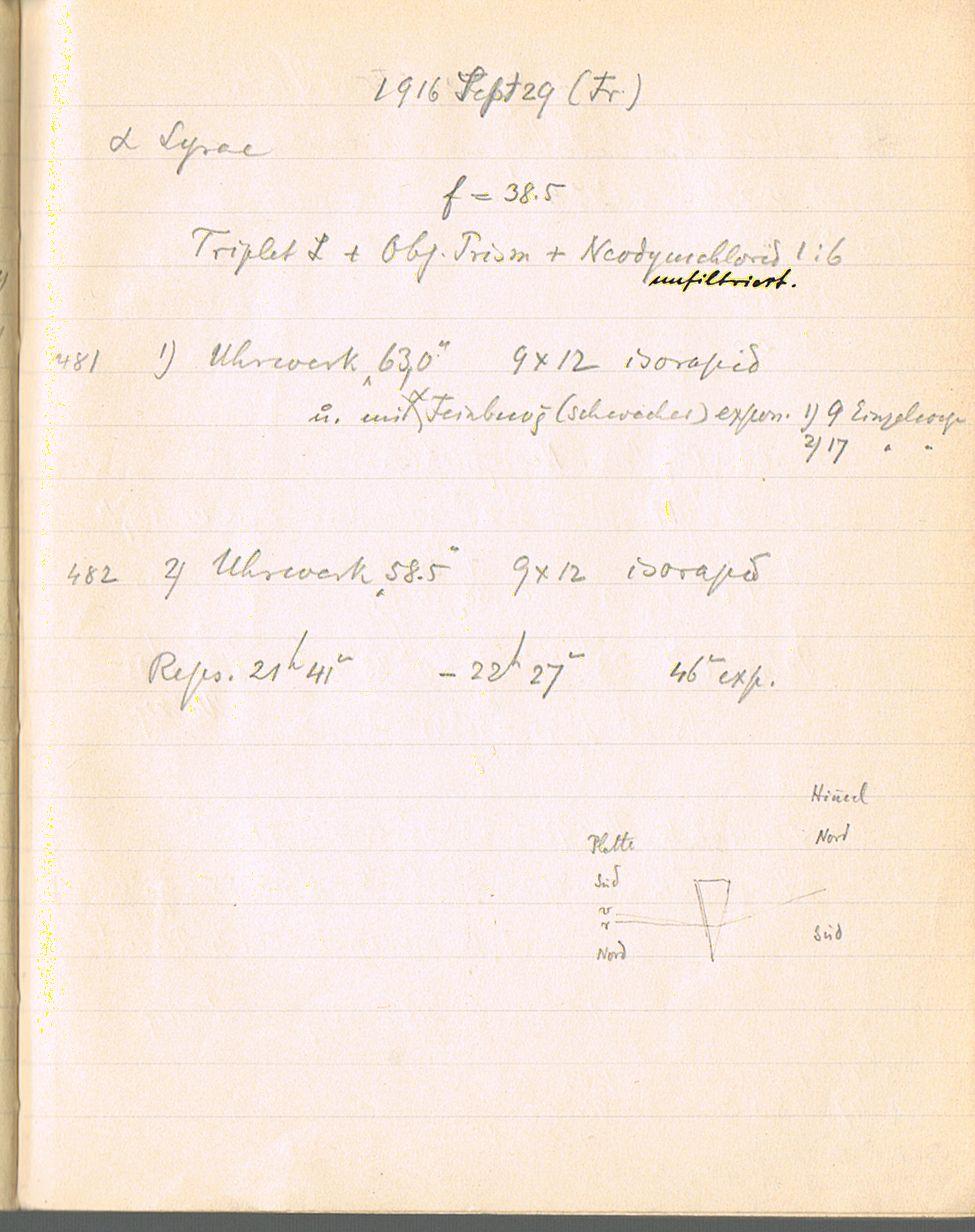 1916 Sept 29 (Fr.)
α Lyrae
f = 38.5
Triplet I + Obj. Prism + Neodymchlorid 1:6
unfiltriert.
481 1) Uhrwerk „63,0" 9x12 isorapid
u. mit (schwacher) expon. 1) 9
2) 17 " "
482 2) Uhrwerk „58.5" 9x12 isorapid
21h 41m – 22h 27m 46m exp.
Him̅el
Nord
Platte
Süd
v
r
Nord
Süd